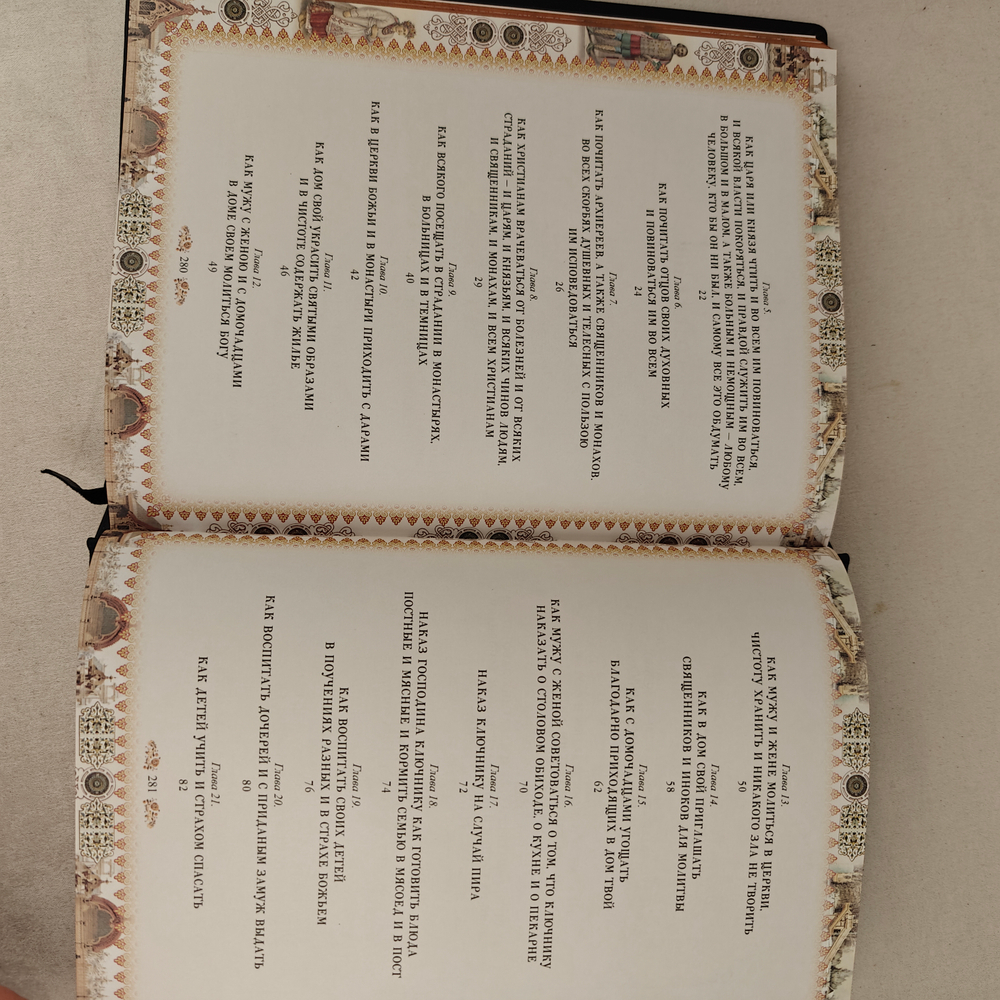 Глава 5.
КАК ЦАРЯ ИЛИ КНЯЗЯ ЧТИТЬ И ВО ВСЕМ ИМ ПОВИНОВАТЬСЯ,
И ВСЯКОЙ ВЛАСТИ ПОКОРЯТЬСЯ, И ПРАВДОЙ СЛУЖИТЬ ИМ ВО ВСЕМ,
В БОЛЬШОМ И В МАЛОМ, А ТАКЖЕ БОЛЬНЫМ И НЕМОЩНЫМ – ЛЮБОМУ
ЧЕЛОВЕКУ, КТО БЫ ОН НИ БЫЛ, И САМОМУ ВСЕ ЭТО ОБДУМАТЬ
22
Глава 6.
КАК ПОЧИТАТЬ ОТЦОВ СВОИХ ДУХОВНЫХ
И ПОВИНОВАТЬСЯ ИМ ВО ВСЕМ
24
Глава 7.
КАК ПОЧИТАТЬ АРХИЕРЕЕВ, А ТАКЖЕ СВЯЩЕННИКОВ И МОНАХОВ,
ВО ВСЕХ СКОРБЯХ ДУШЕВНЫХ И ТЕЛЕСНЫХ С ПОЛЬЗОЮ
ИМ ИСПОВЕДОВАТЬСЯ
26
Глава 8.
КАК ХРИСТИАНАМ ВРАЧЕВАТЬСЯ ОТ БОЛЕЗНЕЙ И ОТ ВСЯКИХ
СТРАДАНИЙ – И ЦАРЯМ, И КНЯЗЬЯМ, И ВСЯКИХ ЧИНОВ ЛЮДЯМ,
И СВЯЩЕННИКАМ, И МОНАХАМ, И ВСЕМ ХРИСТИАНАМ
29
Глава 9.
КАК ВСЯКОГО ПОСЕЩАТЬ В СТРАДАНИИ В МОНАСТЫРЯХ,
В БОЛЬНИЦАХ И В ТЕМНИЦАХ
40
Глава 10.
КАК В ЦЕРКВИ БОЖЬИ И В МОНАСТЫРИ ПРИХОДИТЬ С ДАРАМИ
42
Глава 11.
КАК ДОМ СВОЙ УКРАСИТЬ СВЯТЫМИ ОБРАЗАМИ
И В ЧИСТОТЕ СОДЕРЖАТЬ ЖИЛЬЕ
46
Глава 12.
КАК МУЖУ С ЖЕНОЮ И С ДОМОЧАДЦАМИ
В ДОМЕ СВОЕМ МОЛИТЬСЯ БОГУ
49
280
Глава 13.
КАК МУЖУ И ЖЕНЕ МОЛИТЬСЯ В ЦЕРКВИ,
ЧИСТОТУ ХРАНИТЬ И НИКАКОГО ЗЛА НЕ ТВОРИТЬ
50
Глава 14.
КАК В ДОМ СВОЙ ПРИГЛАШАТЬ
СВЯЩЕННИКОВ И ИНОКОВ ДЛЯ МОЛИТВЫ
58
Глава 15.
КАК С ДОМОЧАДЦАМИ УГОЩАТЬ
БЛАГОДАРНО ПРИХОДЯЩИХ В ДОМ ТВОЙ
62
Глава 16.
КАК МУЖУ С ЖЕНОЙ СОВЕТОВАТЬСЯ О ТОМ, ЧТО КЛЮЧНИКУ
НАКАЗАТЬ О СТОЛОВОМ ОБИХОДЕ, О КУХНЕ И О ПЕКАРНЕ
70
Глава 17.
НАКАЗ КЛЮЧНИКУ НА СЛУЧАЙ ПИРА
72
Глава 18.
НАКАЗ ГОСПОДИНА КЛЮЧНИКУ КАК ГОТОВИТЬ БЛЮДА
ПОСТНЫЕ И МЯСНЫЕ И КОРМИТЬ СЕМЬЮ В МЯСОЕД И В ПОСТ
74
Глава 19.
КАК ВОСПИТАТЬ СВОИХ ДЕТЕЙ
В ПОУЧЕНИЯХ РАЗНЫХ И В СТРАХЕ БОЖЬЕМ
76
Глава 20.
КАК ВОСПИТАТЬ ДОЧЕРЕЙ И С ПРИДАНЫМ ЗАМУЖ ВЫДАТЬ
80
Глава 21.
КАК ДЕТЕЙ УЧИТЬ И СТРАХОМ СПАСАТЬ
82
281